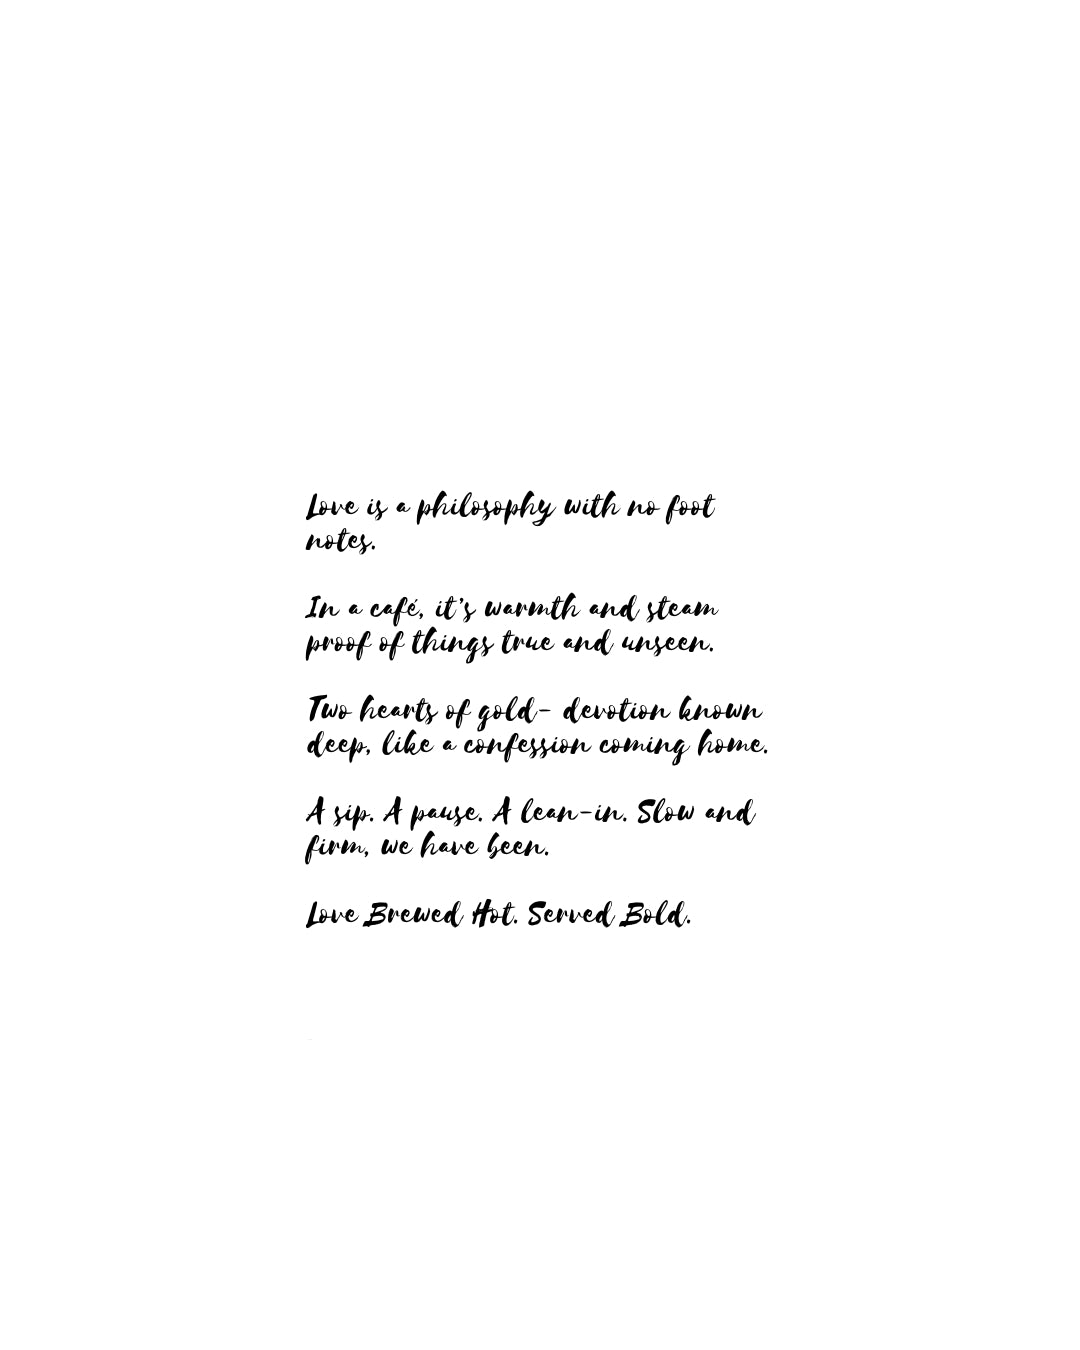 Love is a philosophy with no foot
notes.
In a café, it's warmth and steam
proof of things true and unseen.
Two hearts of gold- devotion known
deep, like a confession coming home.
A sip. A pause. A lean-in. Slow and
firm, we have been.
Love Brewed Hot. Served Bold.